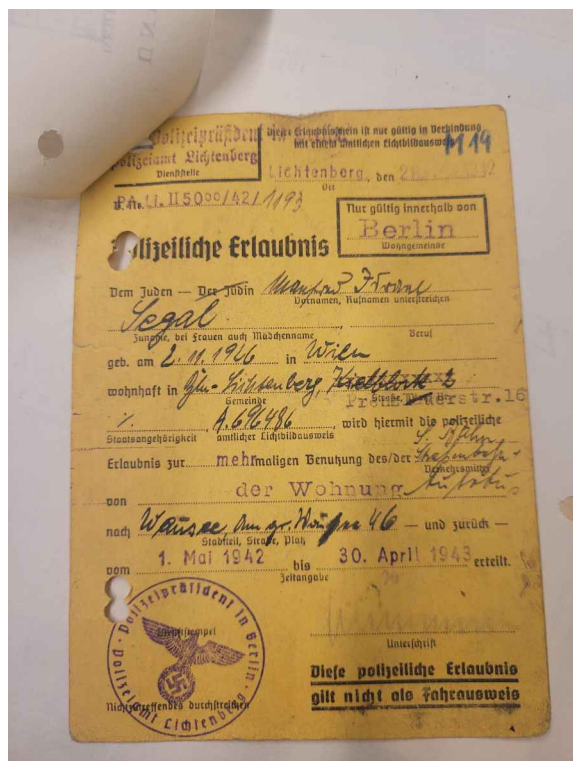 Polizeipräsident in
Polizeiamt Lichtenberg
Dienststelle
Dieser Erlaubnisschein ist nur gültig in Verbindung
mit einem amtlichen Lichtbildausweis
1119
Lichtenberg, den
Ort
P.A.Li. II 5000/42/1193
Nur gültig innerhalb von
Berlin
Wohngemeinde
Polizeiliche Erlaubnis
Dem Juden — Der Jüdin Manfred Israel
Vornamen, Rufnamen unterstreichen
Segal
Zuname, bei Frauen auch Mädchenname
Beruf
geb. am 2.11.1926 in Wien
wohnhaft in Bln-Lichtenberg, Kielblock 2
Prenzlauerstr. 16
Gemeinde
Staatsangehörigkeit
A.696486
amtlicher Lichtbildausweis
, wird hiermit die polizeiliche
S. Bahn
Erlaubnis zur mehrmaligen Benutzung des/der Straßenbahn
Verkehrsmittel
von der Wohnung Autobus
nach Wansee, Am gr. 46 — und zurück —
Stadtteil, Straße, Platz
vom 1. Mai 1942 bis 30. April 1943 erteilt.
Zeitangabe
Dienststempel
Polizeipräsident in Berlin
Polizeiamt Lichtenberg
Unterschrift
Nichtzutreffendes durchstreichen
Diese polizeiliche Erlaubnis
gilt nicht als Fahrausweis